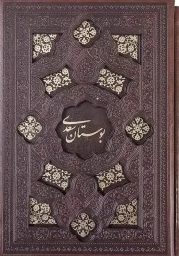 بوستان سعدی